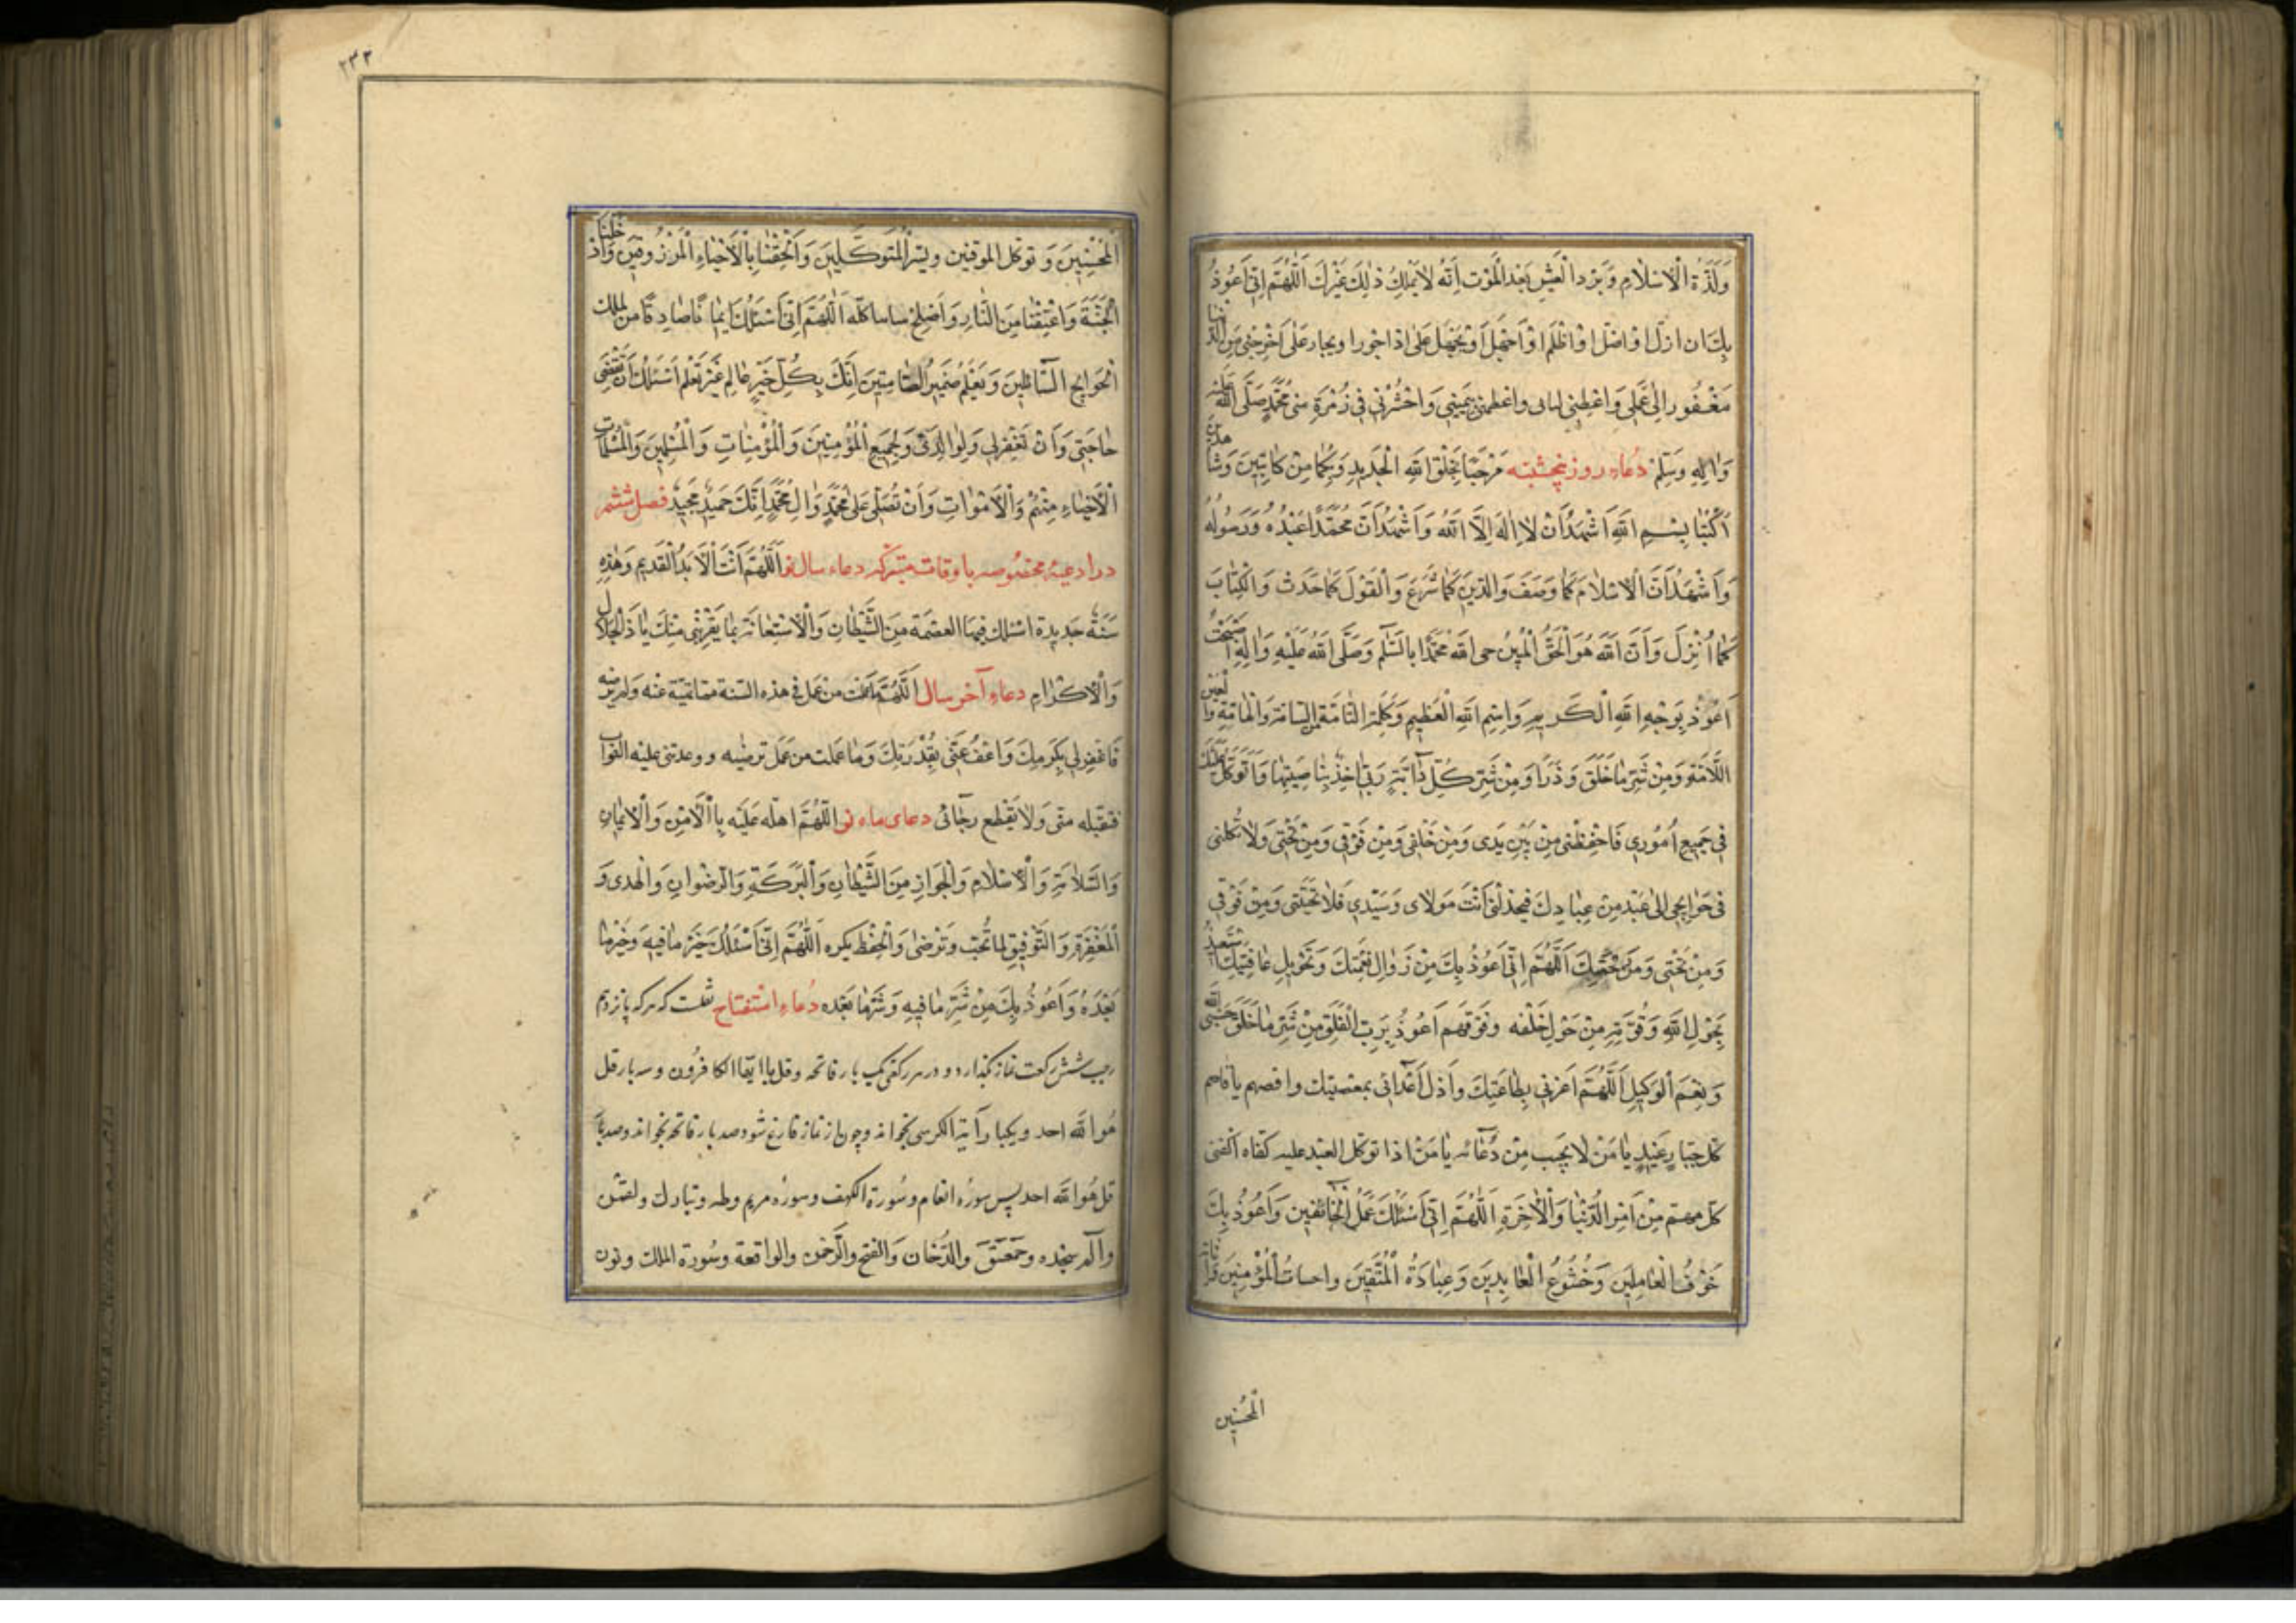 وَلَذَّةَ الْاِسْلَامِ وَبَرْدَ الْعَيْشِ بَعْدَ الْمَوْتِ اِنَّهُ لَا يَمْلِكُ ذٰلِكَ غَيْرُكَ اَللّٰهُمَّ اِنّى اَعُوذُ
بِكَ ان ازل اوْ اضل اوْ اَظْلَم اوْ اَجْهَل اَوْ يُجْهَلَ عَلَىَّ اوْ اجورا ويجار على اَخْرِجْنى مِنَ الدُّنْيا
مَغْفُورا لى عَمَلى وَاعْطِنى كتابى بِيَمينى وَاحْشُرْنى فى زُمْرَةِ مُحَمَّدٍ صَلَّى اللّٰه عَلَيْه
وَاٰلِهِ وَسَلِّمْ دُعاء روز پنجشنبه مَرْحَبًا بِخَلْقِ اللّٰهِ الْجَديدِ وَبِكُما مِنْ كاتِبَيْنِ وَشاهِدَيْنِ
اُكْتُبا بِسْمِ اللّٰهِ اَشْهَدُ اَنْ لا اِلٰهَ اِلَّا اللّٰهُ وَاَشْهَدُ اَنَّ مُحَمَّدًا عَبْدُهُ وَرَسُولُهُ
وَاَشْهَدُ اَنَّ الْاِسْلامَ كَما وَصَفَ وَالدّينَ كَما شَرَعَ وَالْقَوْلَ كَما حَدَثَ وَالْكِتابَ
كَما اُنْزِلَ وَاَنَّ اللّٰهَ هُوَ الْحَقُّ الْمُبينُ حى اللّٰه مُحَمَّدًا بِالسَّلامِ وَصَلَّى اللّٰهُ عَلَيْهِ وَاٰلِهِ اَصْبَحْتُ
اَعُوذُ بِوَجْهِ اللّٰهِ الْكَريمِ وَاسْمِ اللّٰهِ الْعَظيمِ وَكَلِمَتِهِ التّامَّةِ من السامة وَالْهامَّةِ وَالْعَيْنِ
اللّامَّةِ وَمِنْ شَرِّ ما خَلَقَ وَذَرَأَ وَمِنْ شَرِّ كُلِّ دابَّةٍ رَبّى اٰخِذٌ بِناصِيَتِها وَاَتَوَكَّلُ عَلَيْكَ
فى جَميعِ اُمُورى فَاحْفِظْنى مِنْ بَيْنِ يَدَى وَمِنْ خَلْفى وَمِنْ فَوْقى وَمِنْ تَحْتى وَلا تَكِلْنى
فى حَوائِجى اِلى عَبْدٍ مِنْ عِبادِكَ فيخذلنى اَنْتَ مَولاى وَسَيِّدى فَلا تُخَيِّبْنى وَمِنْ فَوْقى
وَمِنْ تَحْتى اَللّٰهُمَّ اِنّى اَعُوذُ بِكَ مِنْ زَوالِ نِعْمَتِكَ وَتَحْويلِ عافِيَتِكَ اسْتَعِيذُ
بِحَوْلِ اللّٰهِ وَقُوَّتِهِ مِنْ حَوْلِ خَلْقِه وقوتهم اَعُوذُ بِرَبِّ الْفَلَقِ مِنْ شَرِّ ما خَلَقَ حَسْبِىَ اللّٰه
وَنِعْمَ الْوَكيلِ اَللّٰهُمَّ اَعِزَّنى بِطاعَتِكَ وَاَذِل اَعْدائى بمعصيتك واقصمهم يا قاصم
كل جَبّارٍ عَنيدٍ يا مَنْ لا يُخَيِّب مِنْ دُعائِه يا مَنْ اذا توكل العبد عليه كفاه اكفنى
كلّ مهمّ مِنْ اَمْرِ الدُّنْيا وَالْاٰخِرَةِ اَللّٰهُمَّ اِنّى اَسْئَلُكَ عَمَلَ الْخائِفينَ وَاَعُوذُ بِكَ
خَوْفُ الْعامِلينَ وَخُشُوعُ الْعابِدينَ وَعِبادَةُ الْمُتَّقينَ واخبات الْمُؤْمِنينَ وَانابة
الْمُحْسِنين
٢٣٢
الْمُحْسِنينَ وَتوكل الموقنين وَبِشْرَ الْمُتَوَكِّلينَ وَاَلْحِقْنا بِالْاَحْياءِ الْمَرْزُوقينَ وَاَدْخِلْنا
الْجَنَّةَ وَاعْتِقْنا مِنَ النّارِ وَاَصْلِحْ شاننا كله اَللّٰهُمَّ اِنّى اَسْئَلُكَ ايمانًا صادِقًا من يملك
الْحَوائِج السّائِلينَ وَيَعْلَمُ ضَميرُ الصّامِتينَ اِنَّكَ بِكُلِّ خَيْرٍ عالِم غَيْر مُعَلَّم اَسْئَلُكَ اَنْ تَقْضِىَ
حاجَتى وَاَنْ تَغْفِرَلى وَلِوالِدَىَّ وَلِجَميعِ الْمُؤْمِنينَ وَالْمُؤْمِناتِ وَالْمُسْلِمينَ وَالْمُسْلِماتِ
الْاَحْياءِ مِنْهُمْ وَالْاَمْواتِ وَاَنْ تُصَلِّىَ عَلى مُحَمَّدٍ وَاٰلِ مُحَمَّدٍ اِنَّكَ حَميدٌ مَجيدٌ فصل ششم
در ادعيهٔ مخصوصه باوقات متبركه دعاء سال نو اَللّٰهُمَّ اَنْتَ الْاَبَدُ الْقَديم وَهٰذِهِ
سَنَةٌ جَديدة اسئلك فيها العصمة مِنَ الشَّيْطانِ وَالْاِسْتِعانَةَ بِما يُقَرِّبُنى مِنْكَ يا ذَا الْجَلالِ
وَالْاِكْرامِ دعاء آخر سال اَللّٰهُمَّ ما عَمِلْتُ من عَمَل فى هذه السّنة مما نهيتنى عنه ولم ترضه
فَاغْفِرْلى بِكَرَمِكَ وَاعْفُ عَنّى بِقُدْرَتِكَ وَما عَمِلت من عَمَل ترضيه ووعدتنى عليه الثواب
فتقبله منّى وَلا تَقْطَع رجائى دعاى ماه نو اَللّٰهُمَّ اهله عَلَيَّ بِالْاَمْنِ وَالْايمانِ
وَالسَّلامَةِ وَالْاِسْلامِ وَالْجَوازِ مِنَ الشَّيْطانِ وَالْبَرَكَةِ وَالرّضوانِ وَالْهدى وَ
الْمَغْفِرَةِ وَالتَّوْفيقِ لِما تُحِبّ وَتَرْضى وَالْحِفْظ يكره اَللّٰهُمَّ اِنّى اَسْئَلُكَ خَيْرَ ما فيهِ وَخَيْرَ ما
بَعْدَهُ وَاَعُوذُ بِكَ مِنْ شَرِّ ما فيهِ وَشَرِّ ما بَعْدَه دُعاء استفتاح ثلث كه هركه پانزدهم
رجب شش ركعت نماز بگذارد و در هر ركعتى يك بار فاتحه وقل يا ايها الكافرون وسه بار قل
هُوَ اللّٰه احد ويكبار آية الكرسى بخواند وچون از نماز فارغ شود صد بار فاتحه بخواند وصد بار
قل هُوَ اللّٰه احد پس سورهٔ انعام وسُورة الكهف وسورهٔ مريم وطه وتبارك ولقمن
والم سجده وحمعسق والدُّخان والفتح والرَّحمن والواقعة وسُورة الملك ونون